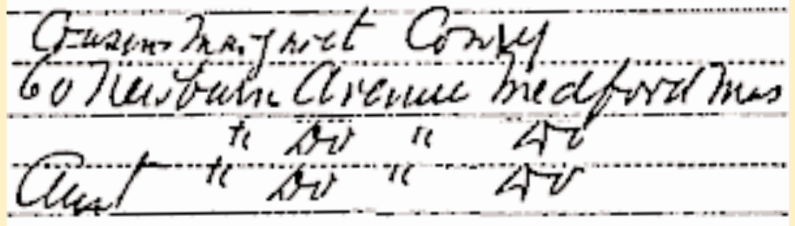 Cousin Margaret Conry
60 Newburn Avenue Medford Mas
" Do " Do
Aunt " Do " Do